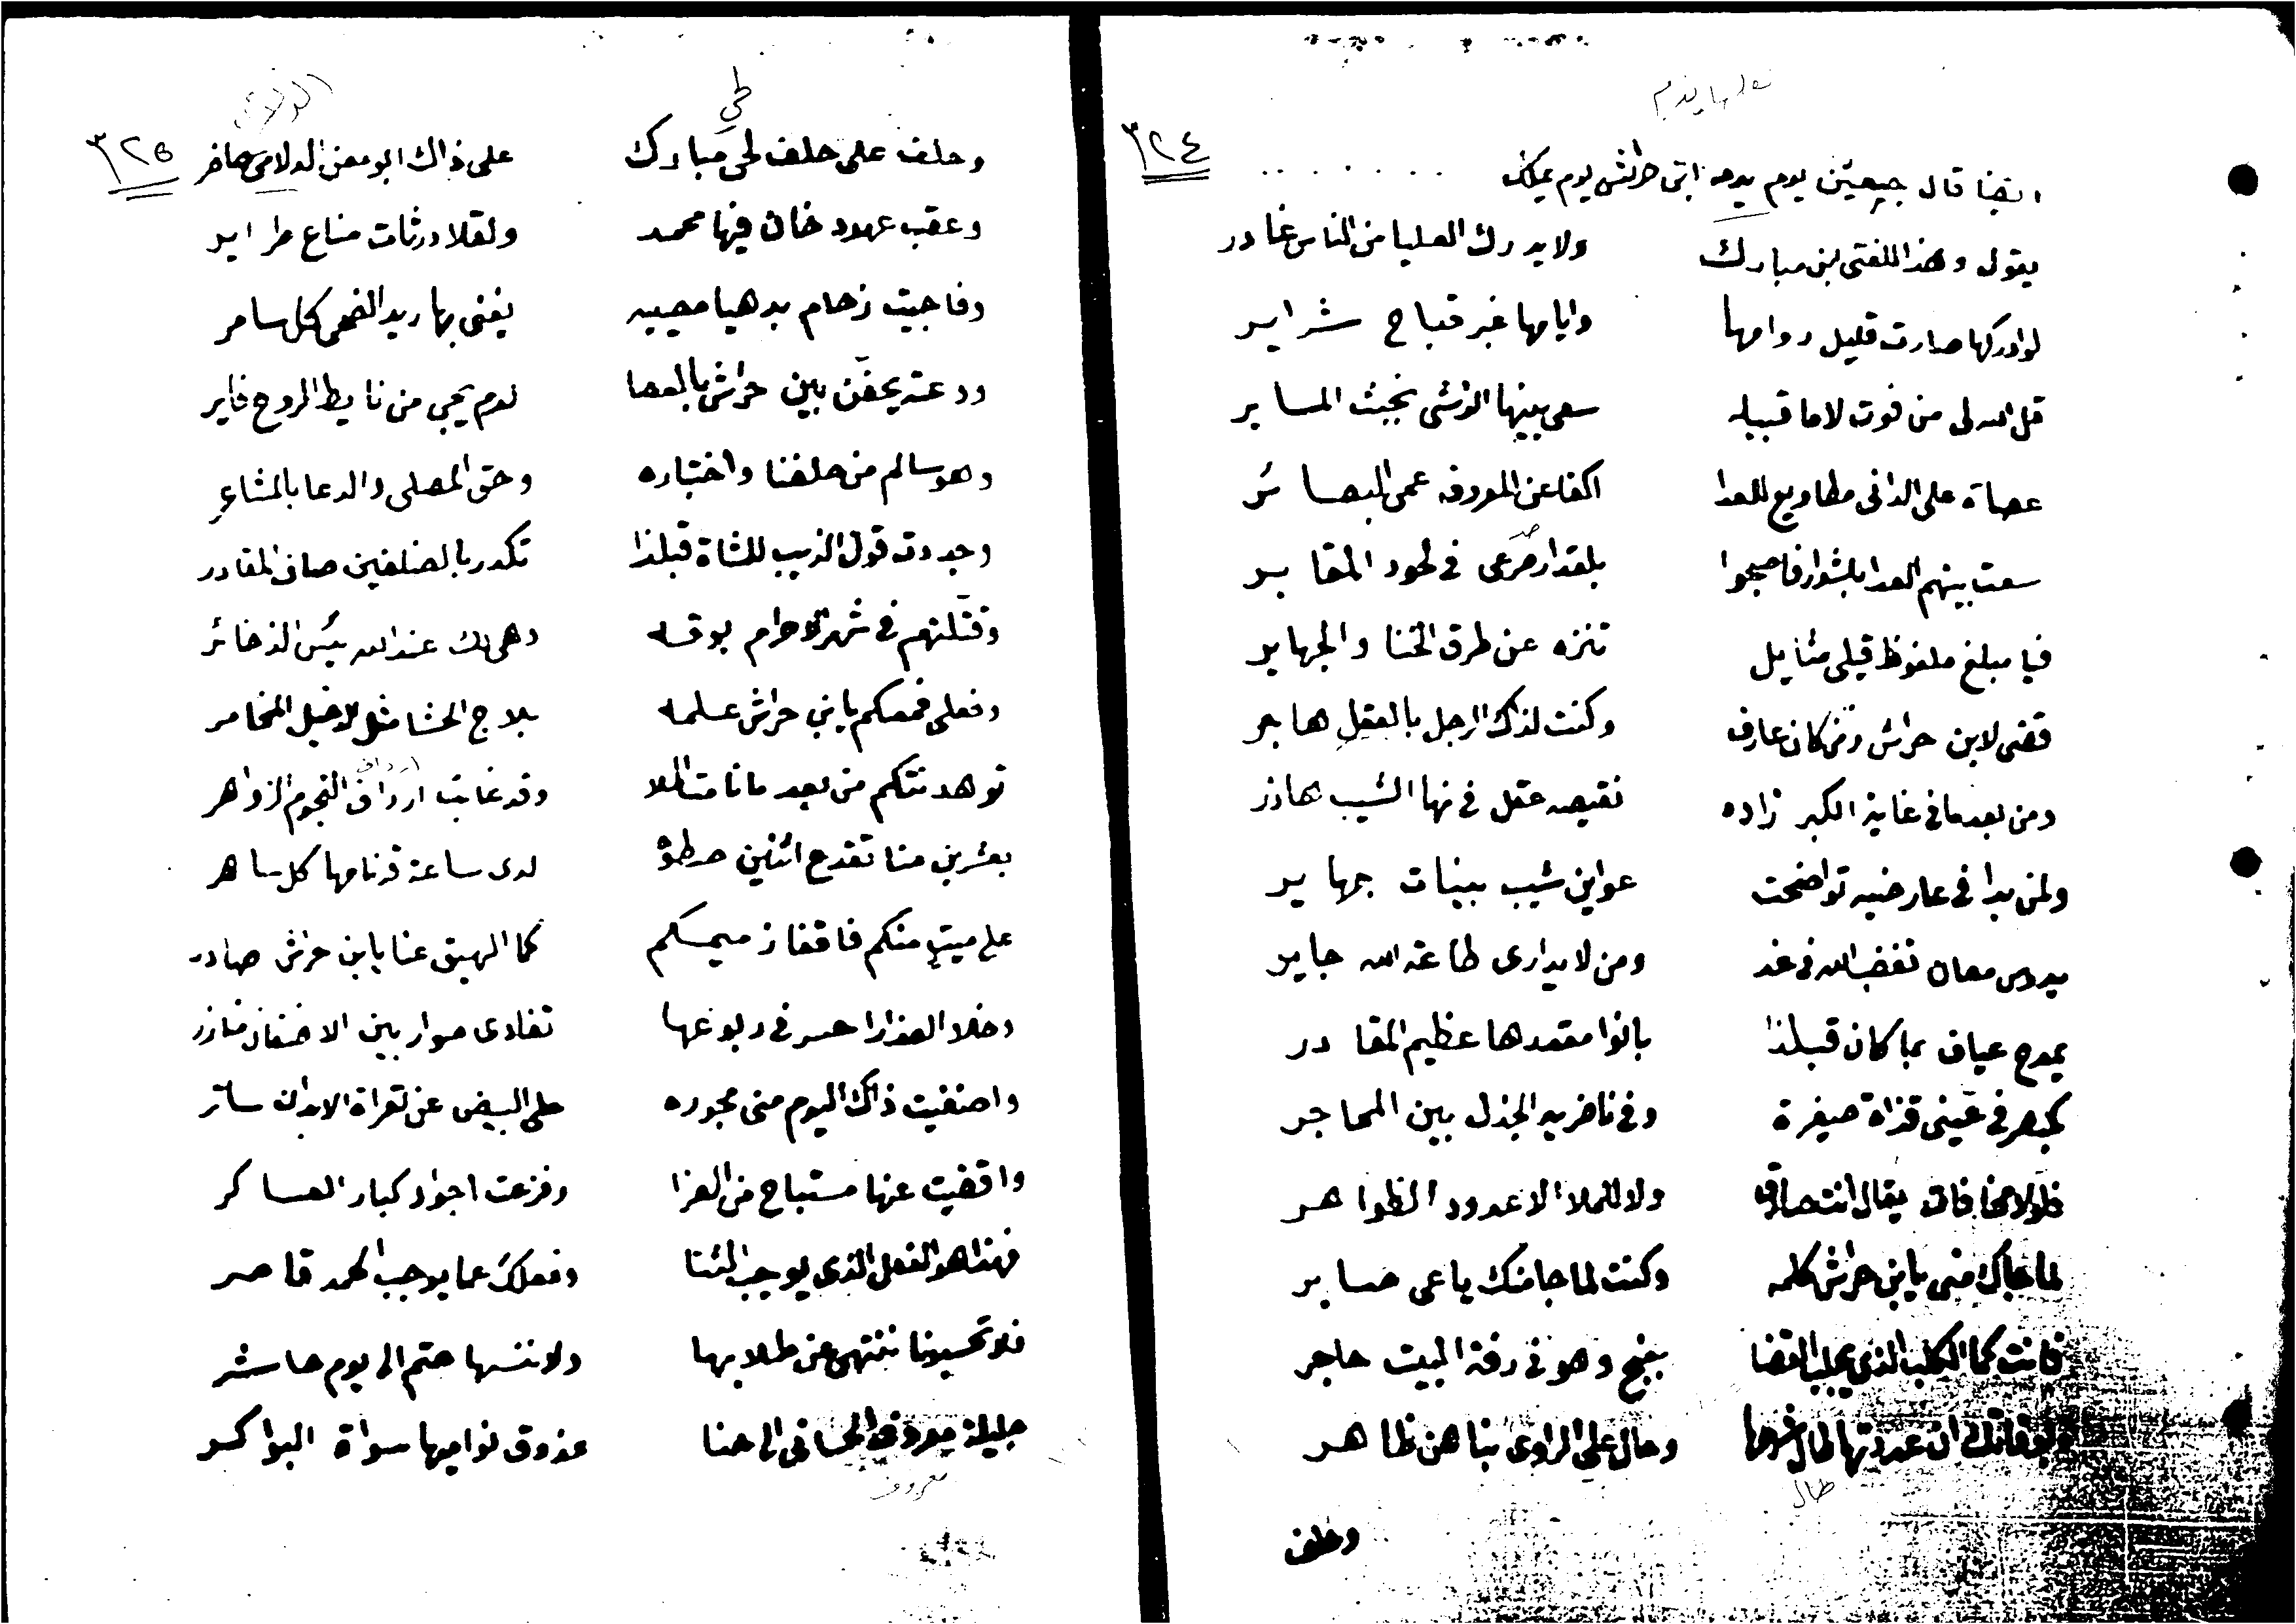 ٣٢٤
ايضا قال جيعيثن يوم يدحه ابن حراش يوم يملك . . . . . . . .
يقول وهذا للفتى بن مبارك ولا يدرك العليا من الناس غادر
لوادركها صارت قليل دوامها وايامها غبر قباح شراير
قل الله لى من فوت لاما قبيله سعى بينها الوشى بخبث المساير
عصاة على الدانى مطاويع للعدا اكفا عن المعروف عمى البصائر
سعت بينهم العدا بلشوار فاصبحوا بلقدار صرعى فى لحود المقابر
فيا مبلغ ملفوظ قيلى مثايل تنزه عن طرق الخنا والجهاير
قضى لابن حراش ومن كان عارف وكنت لذاك الرجل بالعقل هاجر
ومن بعد ما فى غاية الكبر زاده نقيصه عقل فى نها الشيب هاذر
ولمن بدا فى عارضيه تواضحت عواين شيب بينات جهاير
يدوس معان تغضب الله فى غد ومن لا يدارى طاعة الله جاير
يمدح عياف بما كان قبلذا بانوا مقعدها عظيم المقادر
يبصر فى عينى قذاة صغيرة وفى ناضريه الجذل بين المحاجر
فلولا مخافات يقال انت صادق ولا للملا الا عدود الظواهر
لما جاك منى يابن حراش كلمه وكنت لما جا منك ياعى صابر
فانت كما الكلب الذى يجلب القضا بنبح وهو فى رفة البيت حاجر
ان عددتها لحال وحال على الراوى بنا هن ظاهر
طال
وحلف
٣٢٥
وحلف على حلف لحى مبارك على ذاك ابو معن الدلامى صافر
طي
وعقب عهود خان فيها محمد ولقلادرثات مناع طراير
وفاجيت زحام بدهيا مصيبه يغنى بها ريد الضحى كل سامر
ودعته يحفن بين حراش بالعصا لوم يجى من نايط الروح فاير
وهو سالم من حلفنا واختباره وحق المصلى والدعا بالمشاعر
وجددت قول الذيب للشاة قبلذا تكدر بالضلفين صاف المقادر
وقتلتهم فى شهر الاحرام بوقه وهى لك عند الله بئس الذخائر
وفعلى فمعكم يابن حراش علمه بلاج الحشا مثل الدخيل المخامر
توهدنتكم من بعد ما نامت الملا وقد غابت ارداف النجوم الزواهر
بعشرين منا تقدع اثنين سطوة لدى ساعة قد نامها كل ساهر
على ميت منكم فاقفاز ميمسكم كما الهيق عنا يابن حراش صادر
وخلا العذارا حسر فى ربوعها تفادى صوار بين الاضعان فازر
واضفيت ذاك اليوم منى مجوره على البيض عن تعراة الابدان ساتر
واقضيت عنها مستباح من العزا وفزعت اجواد كبار العساكر
فهذا هو الفعل الذى يوجب الثنا وفعلك عما يوجب الحمد قاصر
فلا تحسبونا ننتهى عن طلابها ولا ننسها حتم الى يوم حاشر
جليلة معروف الحسانى الى حنا عذوق نواميها سواة البواكر
معروف